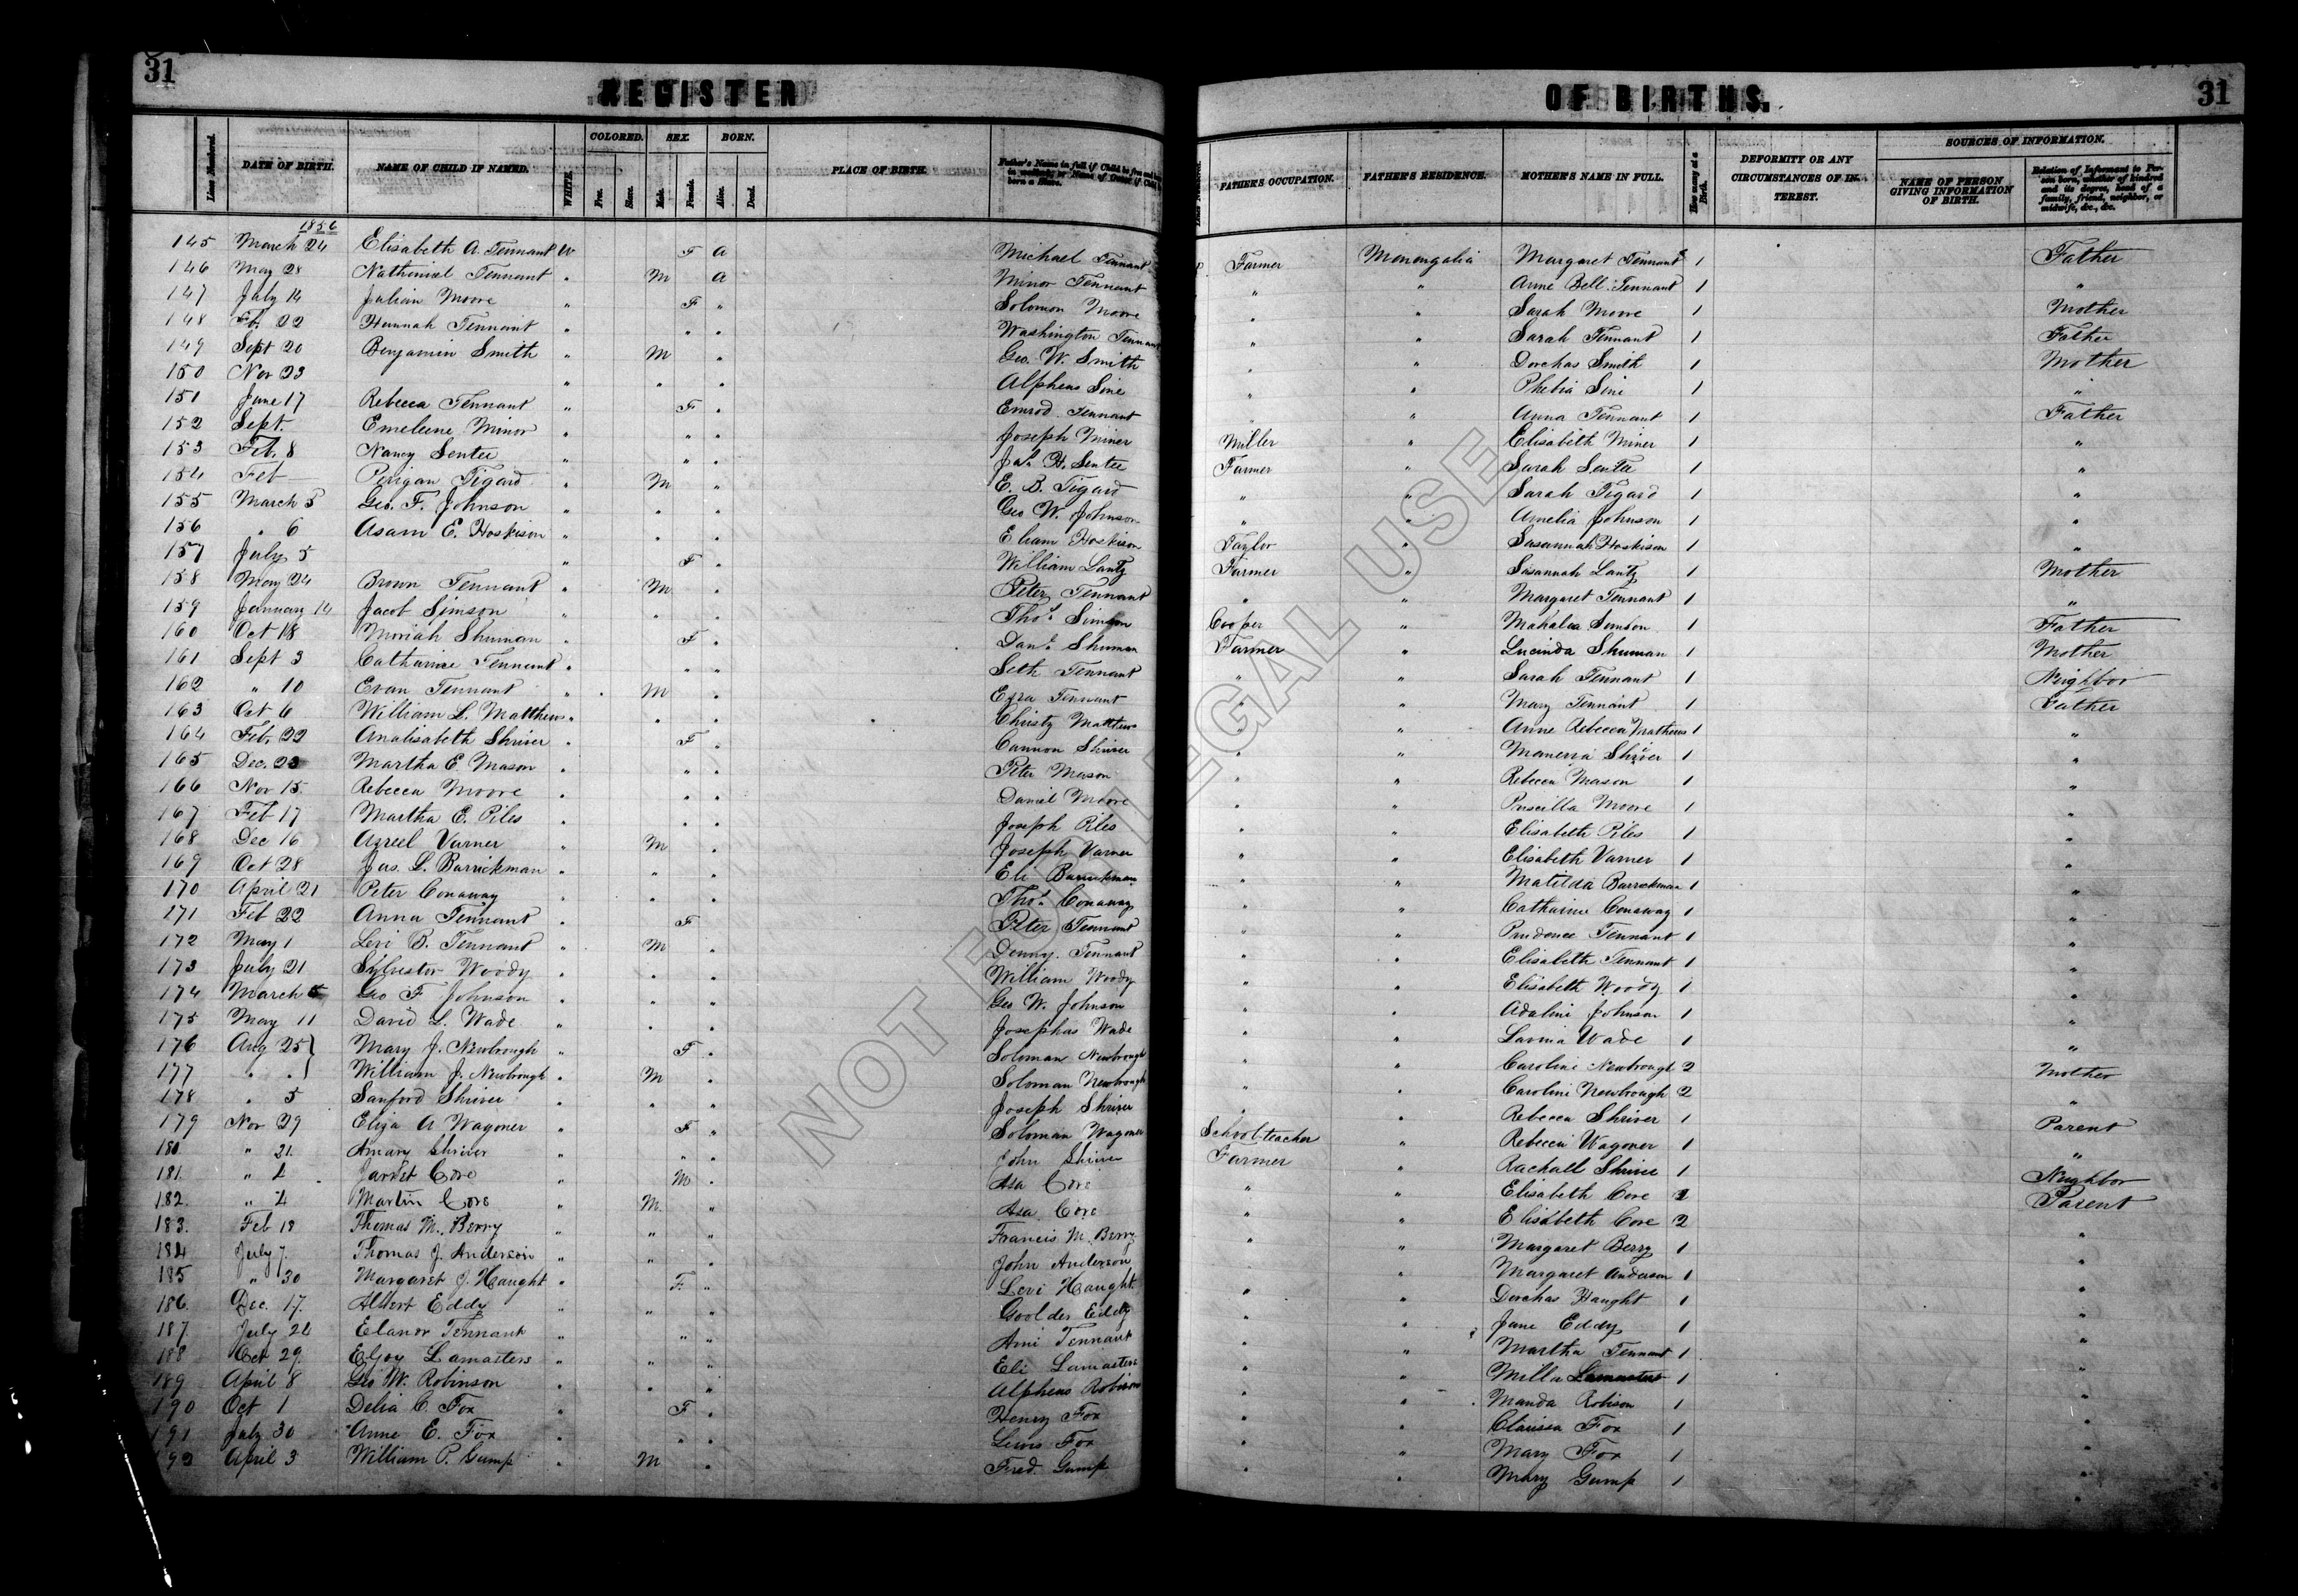 31
REGISTER
Lines Numbered. DATE OF BIRTH. NAME OF CHILD IF NAMED. WHITE. COLORED. Free. Slave. SEX. Male. Female. BORN. Alive. Dead. PLACE OF BIRTH. Father's Name in full if Child be free and born in wedlock; or Name of Owner if Child born a Slave.
1856
145 March 24 Elisabeth A. Tennant W F a Michael Tennant
146 May 28 Nathaniel Tennant " M a Minor Tennant
147 July 14 Julian Moore " F " Solomon Moore
148 Fb. 22 Hannah Tennant " " " Washington Tennant
149 Sept 20 Benjamin Smith " M " Geo. W. Smith
150 Nov 23 " " " Alpheus Sine
151 June 17 Rebecca Tennant " F " Emrod Tennant
152 Sept. Emeleene Minor " " " Joseph Miner
153 Feb. 8 Nancy Sentee " " " Jas. H. Sentee
154 Feb Perigan Tigard " M " E. B. Tigard
155 March 5 Geo. F. Johnson " " " Geo W. Johnson
156 " 6 Asam E. Hoskison " " " Elıam Hoskison
157 July 5 " F " William Lantz
158 May 24 Brown Tennant " M " Peter Tennant
159 January 14 Jacob Simson " " " Thos. Simson
160 Oct 18 Moriah Shuman " F " Danl. Shuman
161 Sept 3 Catharine Tennant " " " Seth Tennant
162 " 10 Evan Tennant " M " Ezra Tennant
163 Oct 6 William L. Matthews " " " Christy Matthews
164 Feb. 22 Analisabeth Shriver " F " Cannon Shriver
165 Dec. 23 Martha E. Mason " " " Peter Mason
166 Nov 15 Rebecca Moore " " " Daniel Moore
167 Feb 17 Martha E. Piles " " " Joseph Piles
168 Dec 16 Azreel Varner " M " Joseph Varner
169 Oct 28 Jas. L. Barrickman " " " Eli Barrickman
170 April 21 Peter Conaway " " " Thos. Conaway
171 Feb 22 Anna Tennant " F " Peter Tennant
172 May 1 Levi B. Tennant " M " Denny Tennant
173 July 21 Sylvester Woody " " " William Woody
174 March 5 Geo F Johnson " " " Geo W. Johnson
175 May 11 David L. Wade " " " Josephus Wade
176 Aug 25 Mary J. Newbrough " F " Soloman Newbrough
177 " " William J. Newbrough " M " Soloman Newbrough
178 " 5 Sanford Shriver " " " Joseph Shriver
179 Nov 29 Eliza A Wagoner " F " Soloman Wagoner
180 " 21 Amary Shriver " " " John Shriver
181. " 4 Jarret Core " M " Asa Core
182. " 4 Martin Core " M " Asa Core
183. Feb 18 Thomas M. Berry " " " Francis M. Berry
184 July 7. Thomas J. Anderson " " " John Anderson
185 " 30 Margaret J. Haught " F. " Levi Haught
186. Dec. 17. Albert Eddy " " " Goolder Eddy
187. July 24 Elanor Tennant " " " Ami Tennant
188 Oct 29. Elzoy Lamasters " " " Eli Lamasters
189 April 8 Geo W. Robinson " " " Alpheus Robison
190 Oct 1 Delia C. Fox " F " Henry Fox
191 July 30 Anne E. Fox " " " Lewis Fox
192 April 3 William P. Gump " M " Fred. Gump
OF BIRTHS.
31
Lines Numbered. FATHER'S OCCUPATION. FATHER'S RESIDENCE. MOTHER'S NAME IN FULL. How many at a Birth. DEFORMITY OR ANY CIRCUMSTANCES OF INTEREST. SOURCES OF INFORMATION. NAME OF PERSON GIVING INFORMATION OF BIRTH. Relation of Informant to Person born, whether of kindred and its degree, head of a family, friend, neighbor, or midwife, &c., &c.
Farmer Monongalia Margaret Tennant 1 Father
" " Anne Bell Tennant 1 "
" " Sarah Moore 1 Mother
" " Sarah Tennant 1 Father
" " Dorchas Smith 1 Mother
" " Phebia Sine 1 "
" " Anna Tennant 1 Father
Miller " Elisabeth Miner 1 "
Farmer " Sarah Sentee 1 "
" " Sarah Tigard 1 "
" " Amelia Johnson 1 "
Taylor " Susannah Hoskison 1 "
Farmer " Susannah Lantz 1 Mother
" " Margaret Tennant 1 "
Cooper " Mahalia Simson 1 Father
Farmer " Lucinda Shuman 1 Mother
" " Sarah Tennant 1 Neighbor
" " Mary Tennant 1 Father
" " Anne Rebecca Mathews 1 "
" " Manerva Shriver 1 "
" " Rebecca Mason 1 "
" " Priscilla Moore 1 "
" " Elisabeth Piles 1 "
" " Elisabeth Varner 1 "
" " Matilda Barrickman 1 "
" " Catharine Conaway 1 "
" " Prudence Tennant 1 "
" " Elisabeth Tennant 1 "
" " Elisabeth Woody 1 "
" " Adaline Johnson 1 "
" " Lavina Wade 1 "
" " Caroline Newbrough 2 Mother
" " Caroline Newbrough 2 "
" " Rebecca Shriver 1 Parent
School teacher " Rebecca Wagoner 1 "
Farmer " Rachall Shriver 1 Neighbor
" " Elisabeth Core 2 Parent
" " Elisabeth Core 2 "
" " Margaret Berry 1 "
" " Margaret Anderson 1 "
" " Dorchas Haught 1 "
" " Jane Eddy 1 "
" " Martha Tennant 1 "
" " Milla Lamasters 1 "
" " Manda Robison 1 "
" " Clarissa Fox 1 "
" " Mary Fox 1 "
" " Mary Gump 1 "
NOT FOR LEGAL USE